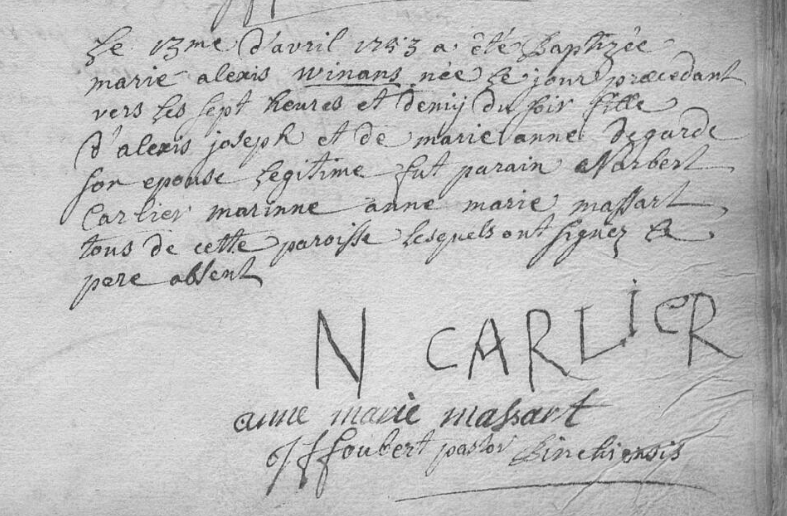 Le 13me d'avril 1753 a été baptizée
marie alexis winans née le jour præcedant
vers les sept heures et demij du soir fille
d'alexis joseph et de marie anne degarde
son epouse legitime fut parain Norbert
Carlier marinne anne marie massart
tous de cette paroisse lesquels ont signez le
pere absent
N CARLiER
anne marie massart
foubert pastor Binchiensis